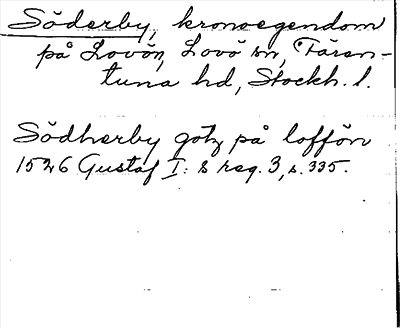 Söderby, kronoegendom
på Lovön, Lovö sn, Fären-
tuna hd, Stockh. l.
Södherby götz på loffön
1526 Gustaf I:s reg. 3, s. 335.